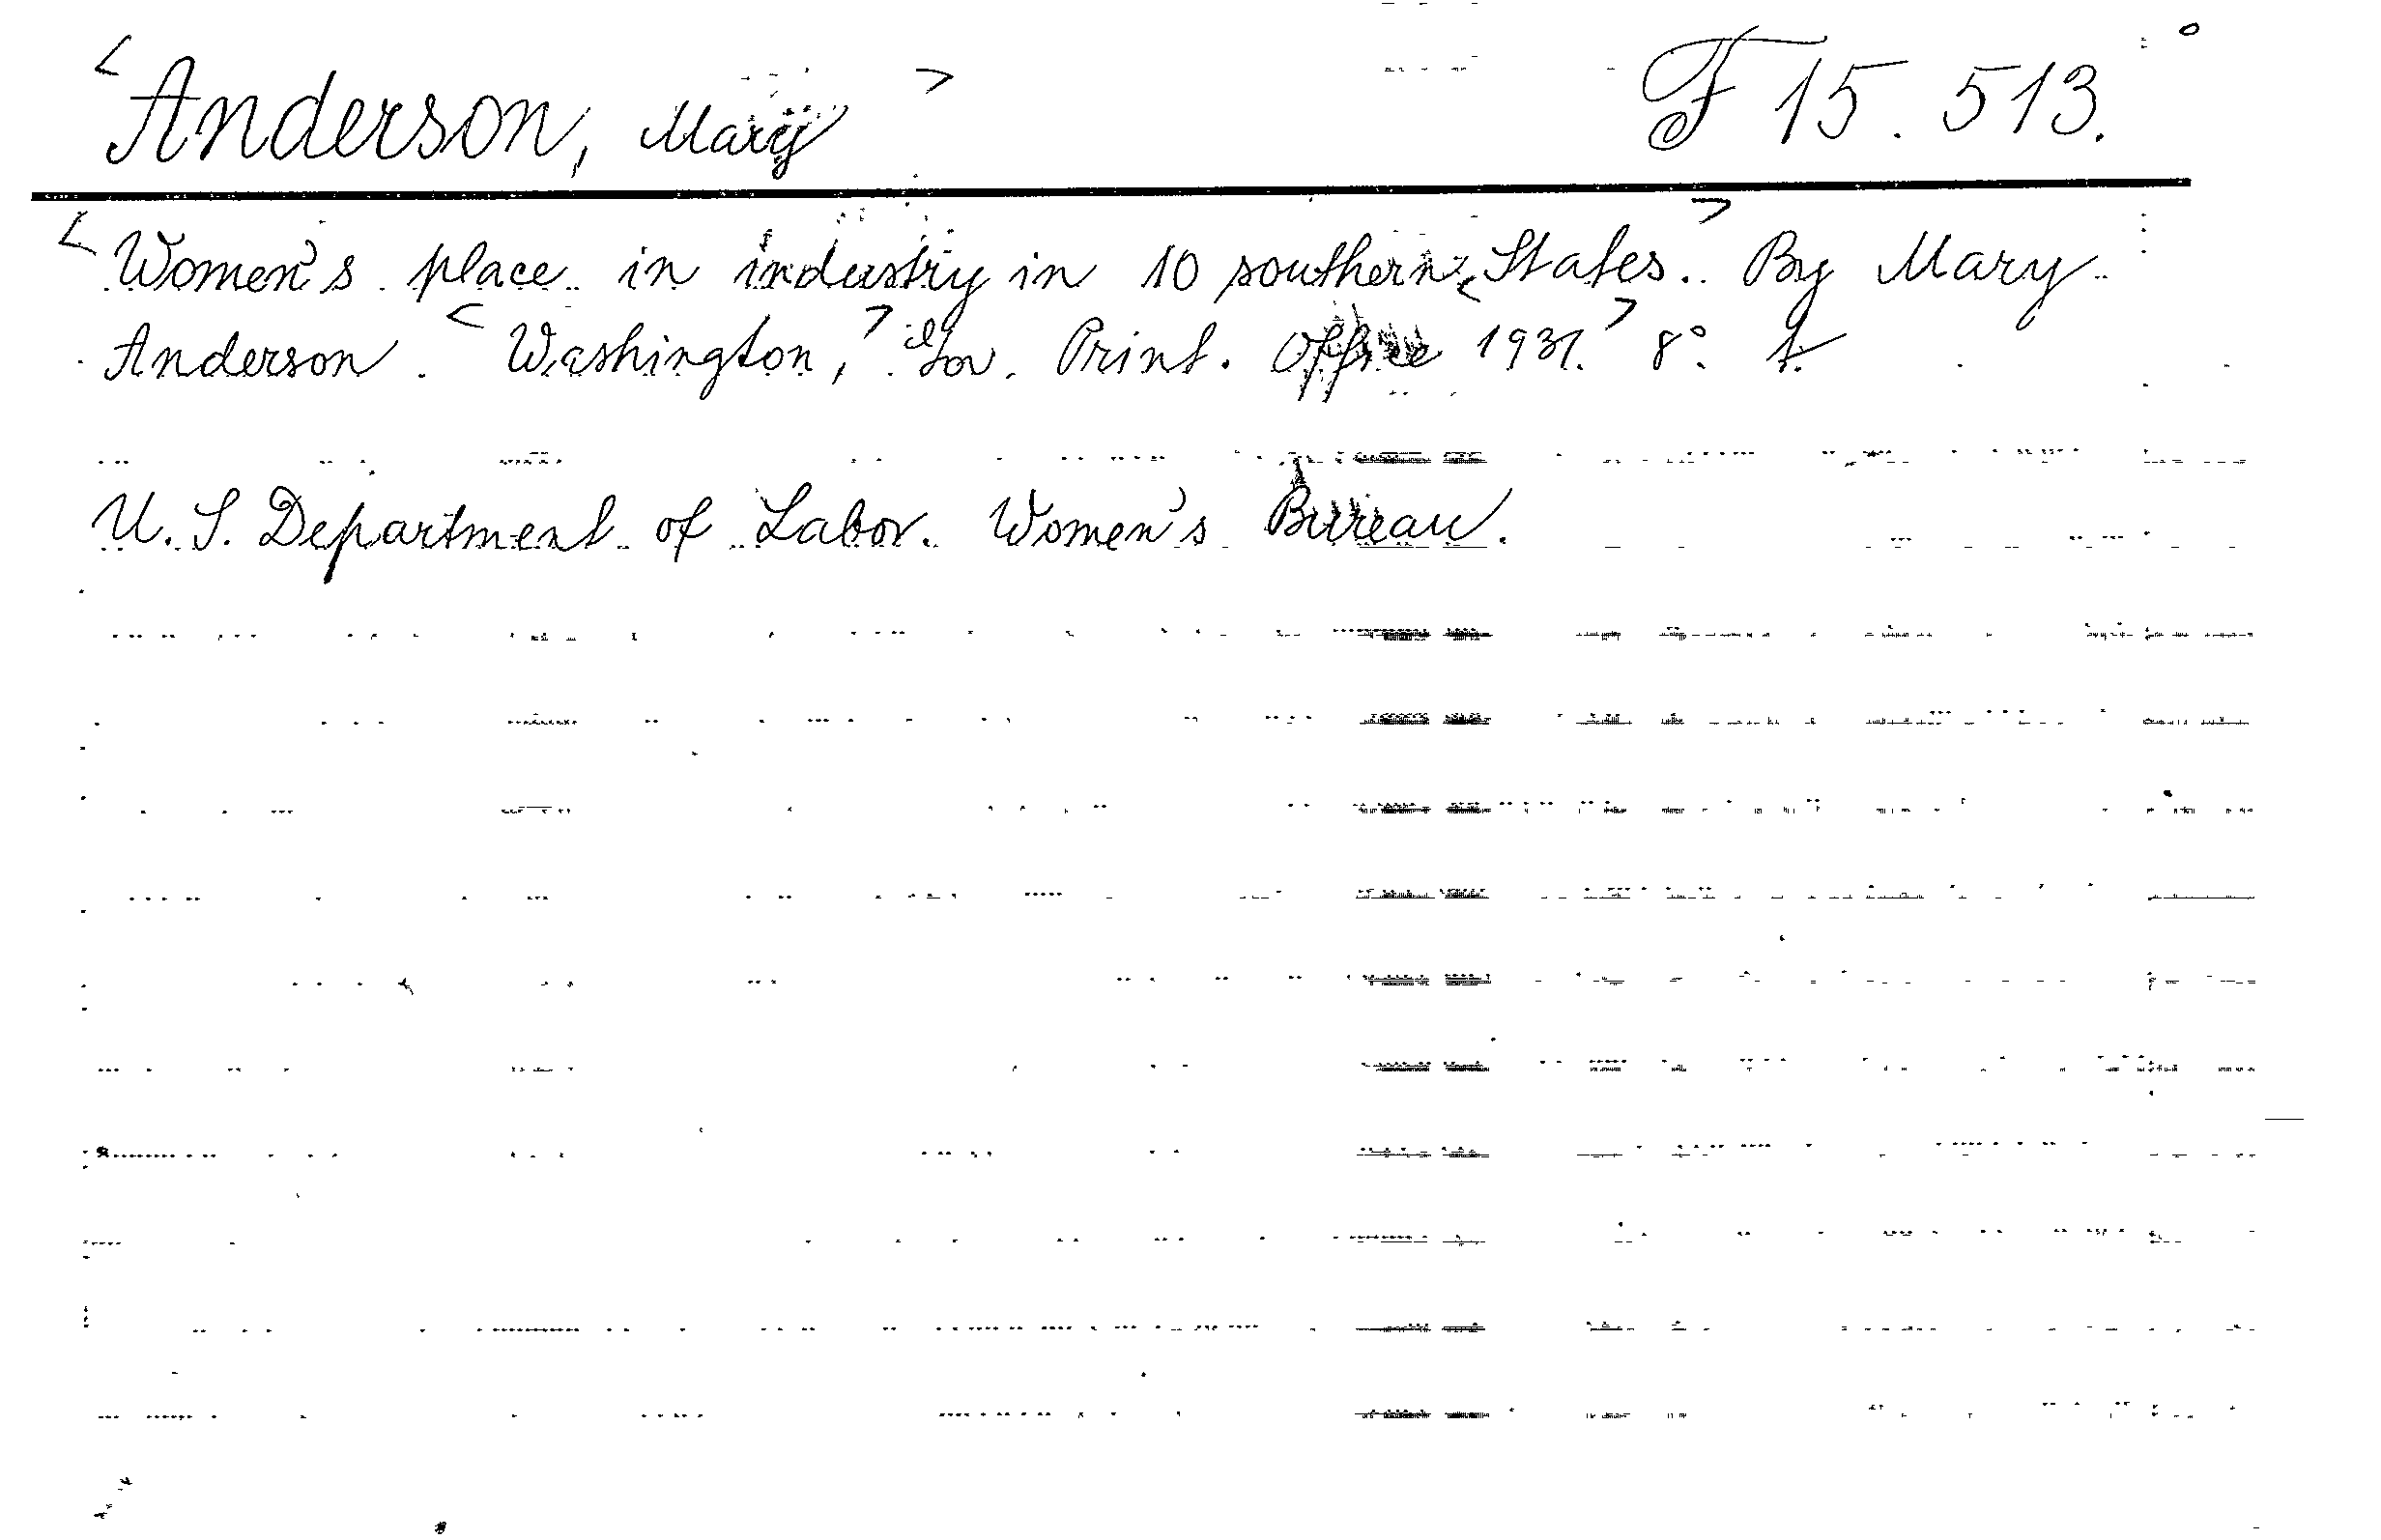 <Anderson, Mary> F 15.513.
<Women's place in industry in 10 southern <States.> By Mary
Anderson. <Washington,> Gov. Print. Office 1931.> 8°.
U.S. Department of Labor. Women's Bureau.